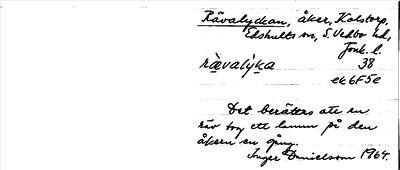 Rävalyckan, åker, Kolstorp,
Edshults sn, S. Vedbo hd,
Jönk. l.
rävalýka 38
ek 6F5e
Det berättas att en
räv tog ett lamm på den
åkern en gång.
Inger Danielsson 1964.